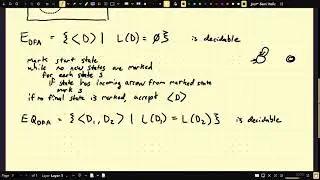 E_DFA = {⟨D⟩ | L(D) = ∅} is decidable
mark start state
while no new states are marked
for each state s
if state has incoming arrow from marked state
mark s
if no final state is marked, accept ⟨D⟩
EQ_DFA = {⟨D₁, D₂⟩ | L(D₁) = L(D₂)} is decidable
Layer Layer 3